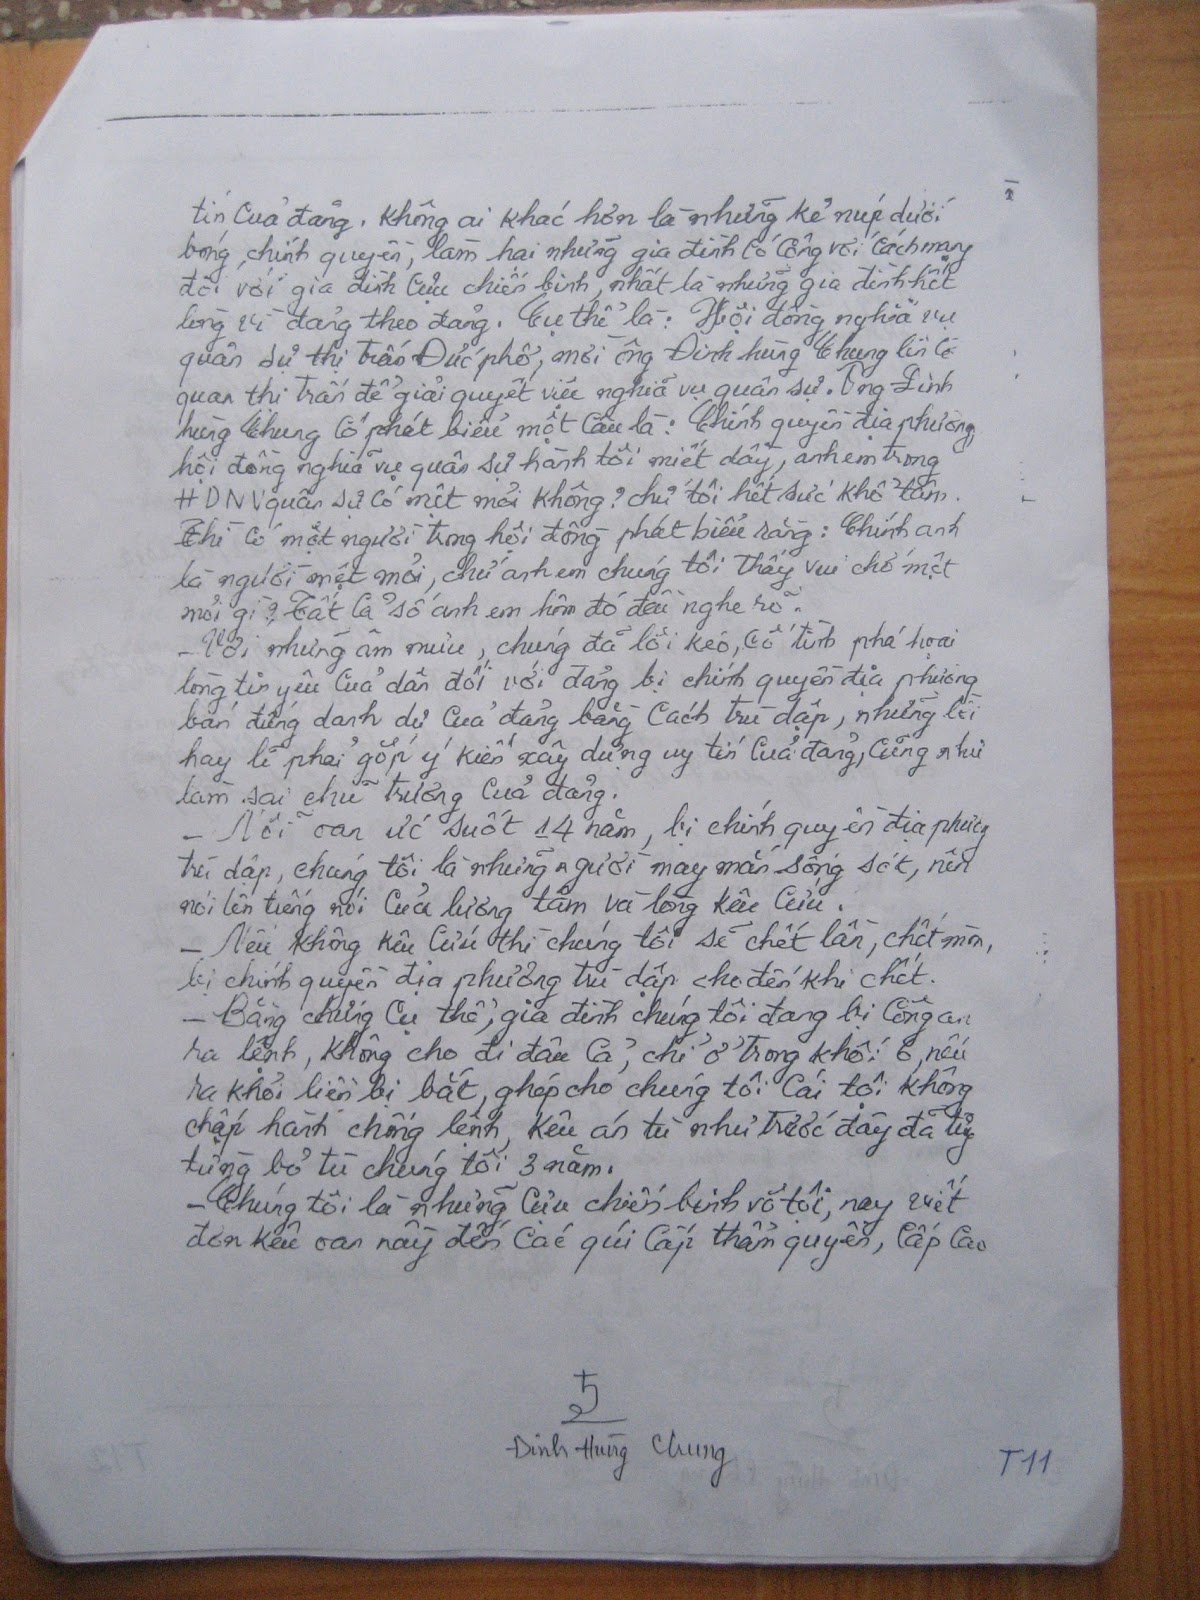 tín của đảng. Không ai khác hơn là những kẻ núp dưới
bóng chính quyền, làm hại những gia đình có công với cách mạng
đối với gia đình cựu chiến binh, nhất là những gia đình hết
lòng vì đảng theo đảng. Cụ thể là: Hội đồng nghĩa vụ
quân sự thị trấn Đức phổ, mời ông Đinh hùng Chung lên cơ
quan thị trấn để giải quyết việc nghĩa vụ quân sự. Ông Đinh
hùng Chung có phát biểu một câu là: Chính quyền địa phương,
hội đồng nghĩa vụ quân sự hành tôi miết dậy, anh em trong
HĐNV quân sự có mệt mỏi không? chứ tôi hết sức khổ tâm.
Thì có một người trong hội đồng phát biểu rằng: Chính anh
là người mệt mỏi, chứ anh em chúng tôi thấy vui chớ mệt
mỏi gì? Tất cả số anh em hôm đó đều nghe rõ.
- Với những âm mưu, chúng đã lôi kéo, cố tình phá hoại
lòng tin yêu của dân đối với đảng bị chính quyền địa phương
bán đứng danh dự của đảng bằng cách trù dập, những lời
hay lẽ phải góp ý kiến xây dựng uy tín của đảng, cũng như
làm sai chủ trương của đảng.
- Nỗi oan ức suốt 14 năm, bị chính quyền địa phương
trù dập, chúng tôi là những người may mắn sống sót, nên
nói lên tiếng nói của lương tâm và lòng kêu cứu.
- Nếu không kêu cứu thì chúng tôi sẽ chết lần, chết mòn,
bị chính quyền địa phương trù dập cho đến khi chết.
- Bằng chứng cụ thể, gia đình chúng tôi đang bị Công an
ra lệnh, không cho đi đâu cả, chỉ ở trong khối 6, nếu
ra khỏi liền bị bắt, ghép cho chúng tôi cái tội không
chấp hành chống lệnh, kêu án tù như trước đây đã
từng bỏ tù chúng tôi 3 năm.
- Chúng tôi là những cựu chiến binh vô tội, nay viết
đơn kêu oan này đến các quí cấp thẩm quyền, cấp cao
Đinh Hùng Chung
T11